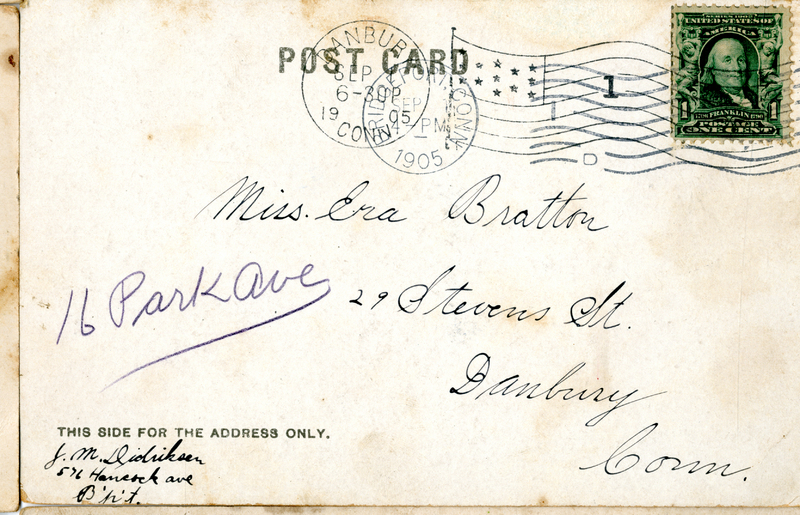 POST CARD
DANBURY
SEP 1
6-30P
1905
CONN.
BRIDGEPORT, CONN.
SEP
4-PM
1905
1
D
SERIES 1902
UNITED STATES OF
AMERICA
1 1
1706 FRANKLIN 1790
POSTAGE
ONE CENT
Miss. Era Bratton
16 Park Ave
29 Stevens St.
Danbury
Conn.
THIS SIDE FOR THE ADDRESS ONLY.
J. M. Didriksen
576 Hancock ave
B'p't.